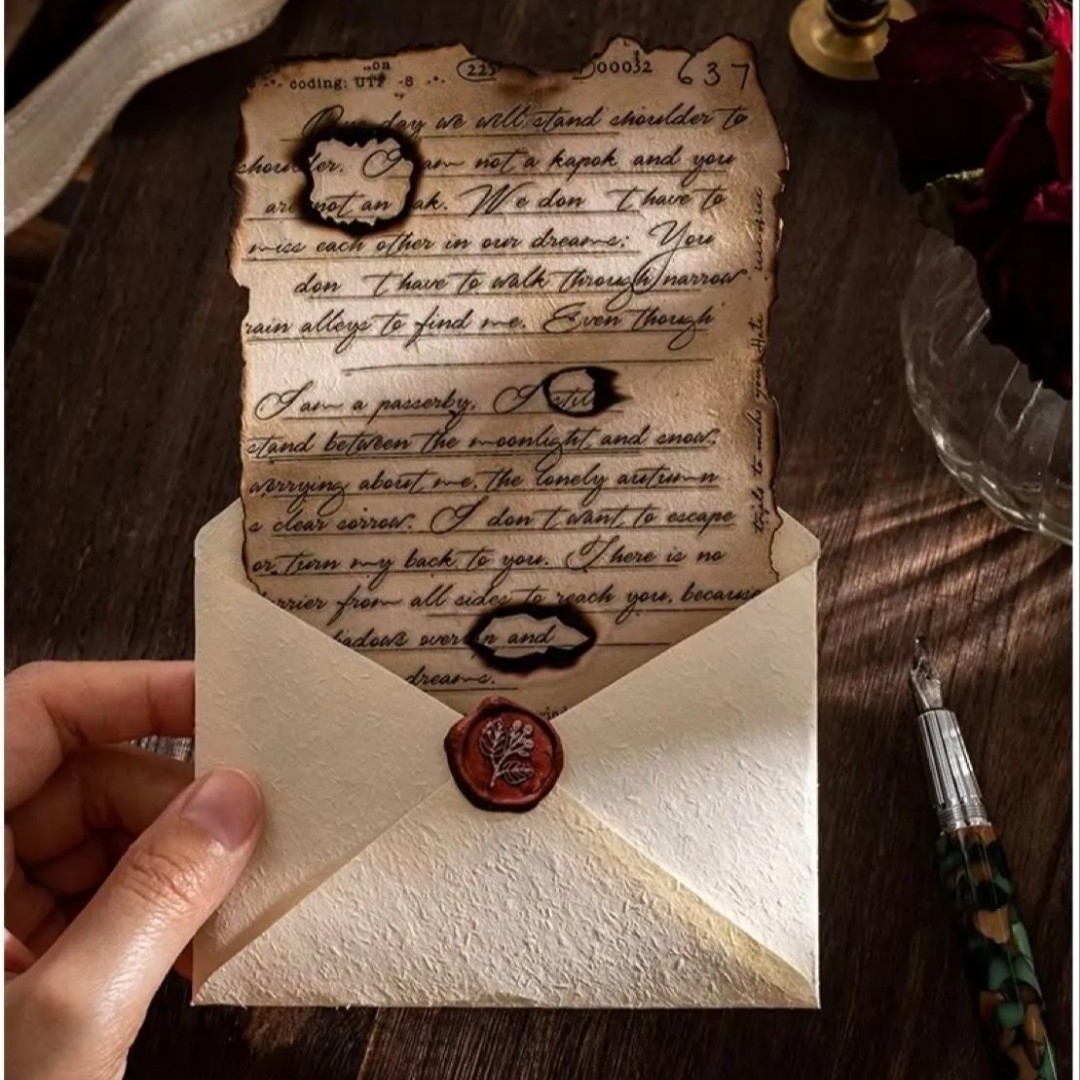 coding: UTF -8
225
00032
637
One day we will stand shoulder to
shoulder. I am not a kapok and you
are not an oak. We don t have to
miss each other in our dreams; You
don t have to walk through narrow
rain alleys to find me. Even though
I am a passerby, I still
stand between the moonlight and snow,
worrying about me, the lonely autumn
s clear sorrow. I don t want to escape
or turn my back to you. There is no
barrier from all sides to reach you, because
and
dreams.
to make your